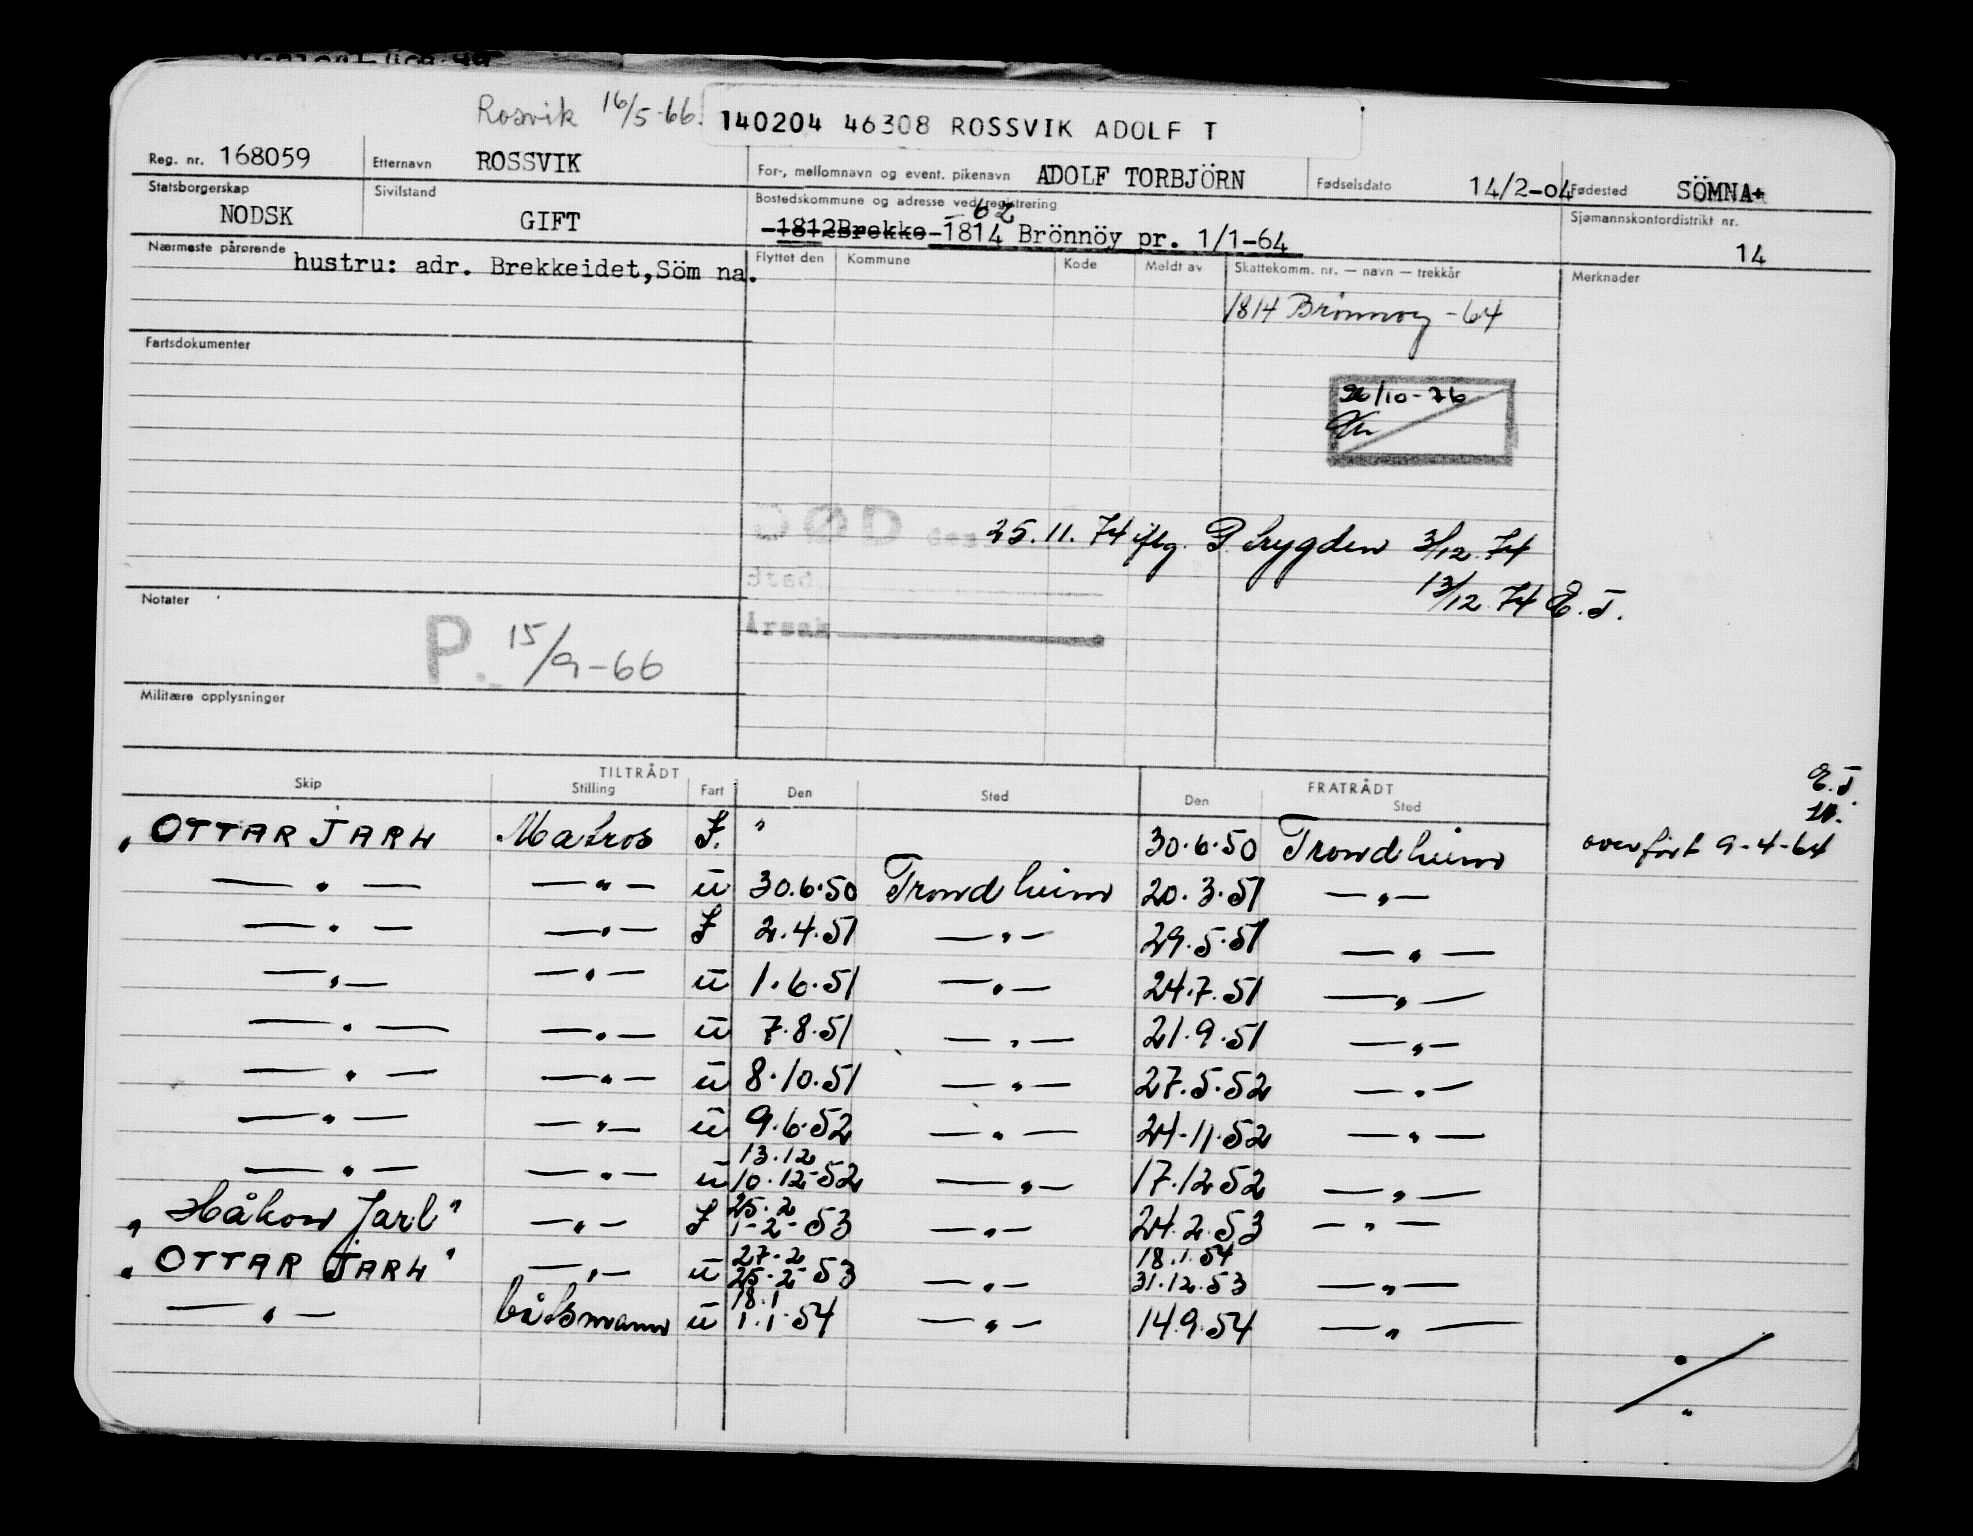 Rosvik 16/5-66. 140204 46308 ROSSVIK ADOLF T
Reg. nr. 168059 Etternavn ROSSVIK For-, mellomnavn og event. pikenavn ADOLF TORBJÖRN Fødselsdato 14/2-04 Fødested SÖMNA
Statsborgerskap NODSK Sivilstand GIFT Bostedskommune og adresse ved registrering Sjømannskontordistrikt nr. 14
-62
-1812Brekke-1814 Brönnöy pr. 1/1-64
Nærmeste pårørende hustru: adr. Brekkeidet,Söm na.
Flyttet den Kommune Kode Meldt av Skattekomm. nr. — navn — trekkår Merknader
1814 Brönnöy -64
Fartsdokumenter
26/10-76
DØD 25.11.74 iflg. P trygden 3/12.74
Sted
13/12 74 E.T.
Årsak
Notater
P. 15/9-66
Militære opplysninger
TILTRÅDT FRATRÅDT
Skip Stilling Fart Den Sted Den Sted
E.T.
"OTTAR JARL Matros I. " 30.6.50 Trondheim overført 9-4-64
—"— —"— u 30.6.50 Trondheim 20.3.51 —"—
—"— —"— I 2.4.51 —"— 29.5.51 —"—
—"— —"— u 1.6.51 —"— 24.7.51 —"—
—"— —"— u 7.8.51 —"— 21.9.51 —"—
—"— —"— u 8.10.51 —"— 27.5.52 —"—
—"— —"— u 9.6.52 —"— 24.11.52 —"—
13.12
—"— —"— u 10.12-52 —"— 17.12.52 —"—
25.2
"Håkon Jarl" —"— I 1-2-53 —"— 24.2.53 —"—
27-2 18.1.54
"OTTAR JARL" —"— u 25-2-53 —"— 31.12.53 —"—
18.1
—"— båtsmann u 1.1-54 —"— 14.9.54 —"—
./.